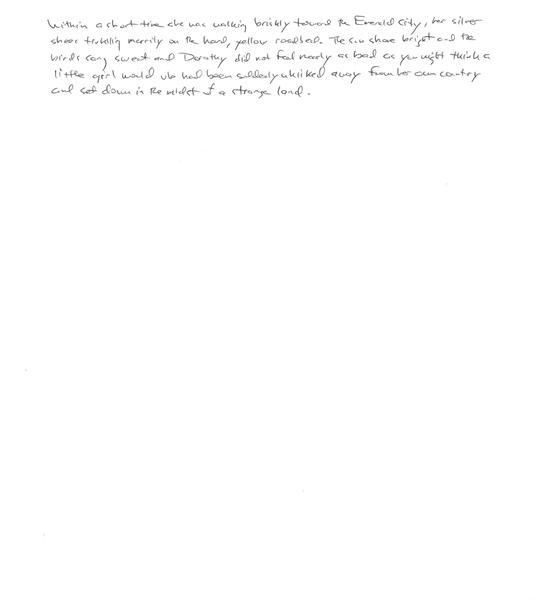 Within a short time she was walking briskly toward the Emerald City, her silver
shoes tinkling merrily on the hard, yellow roadbed. The sun shone bright and the
birds sang sweet and Dorothy did not feel nearly as bad as you might think a
little girl would who had been suddenly whisked away from her own country
and set down in the midst of a strange land.